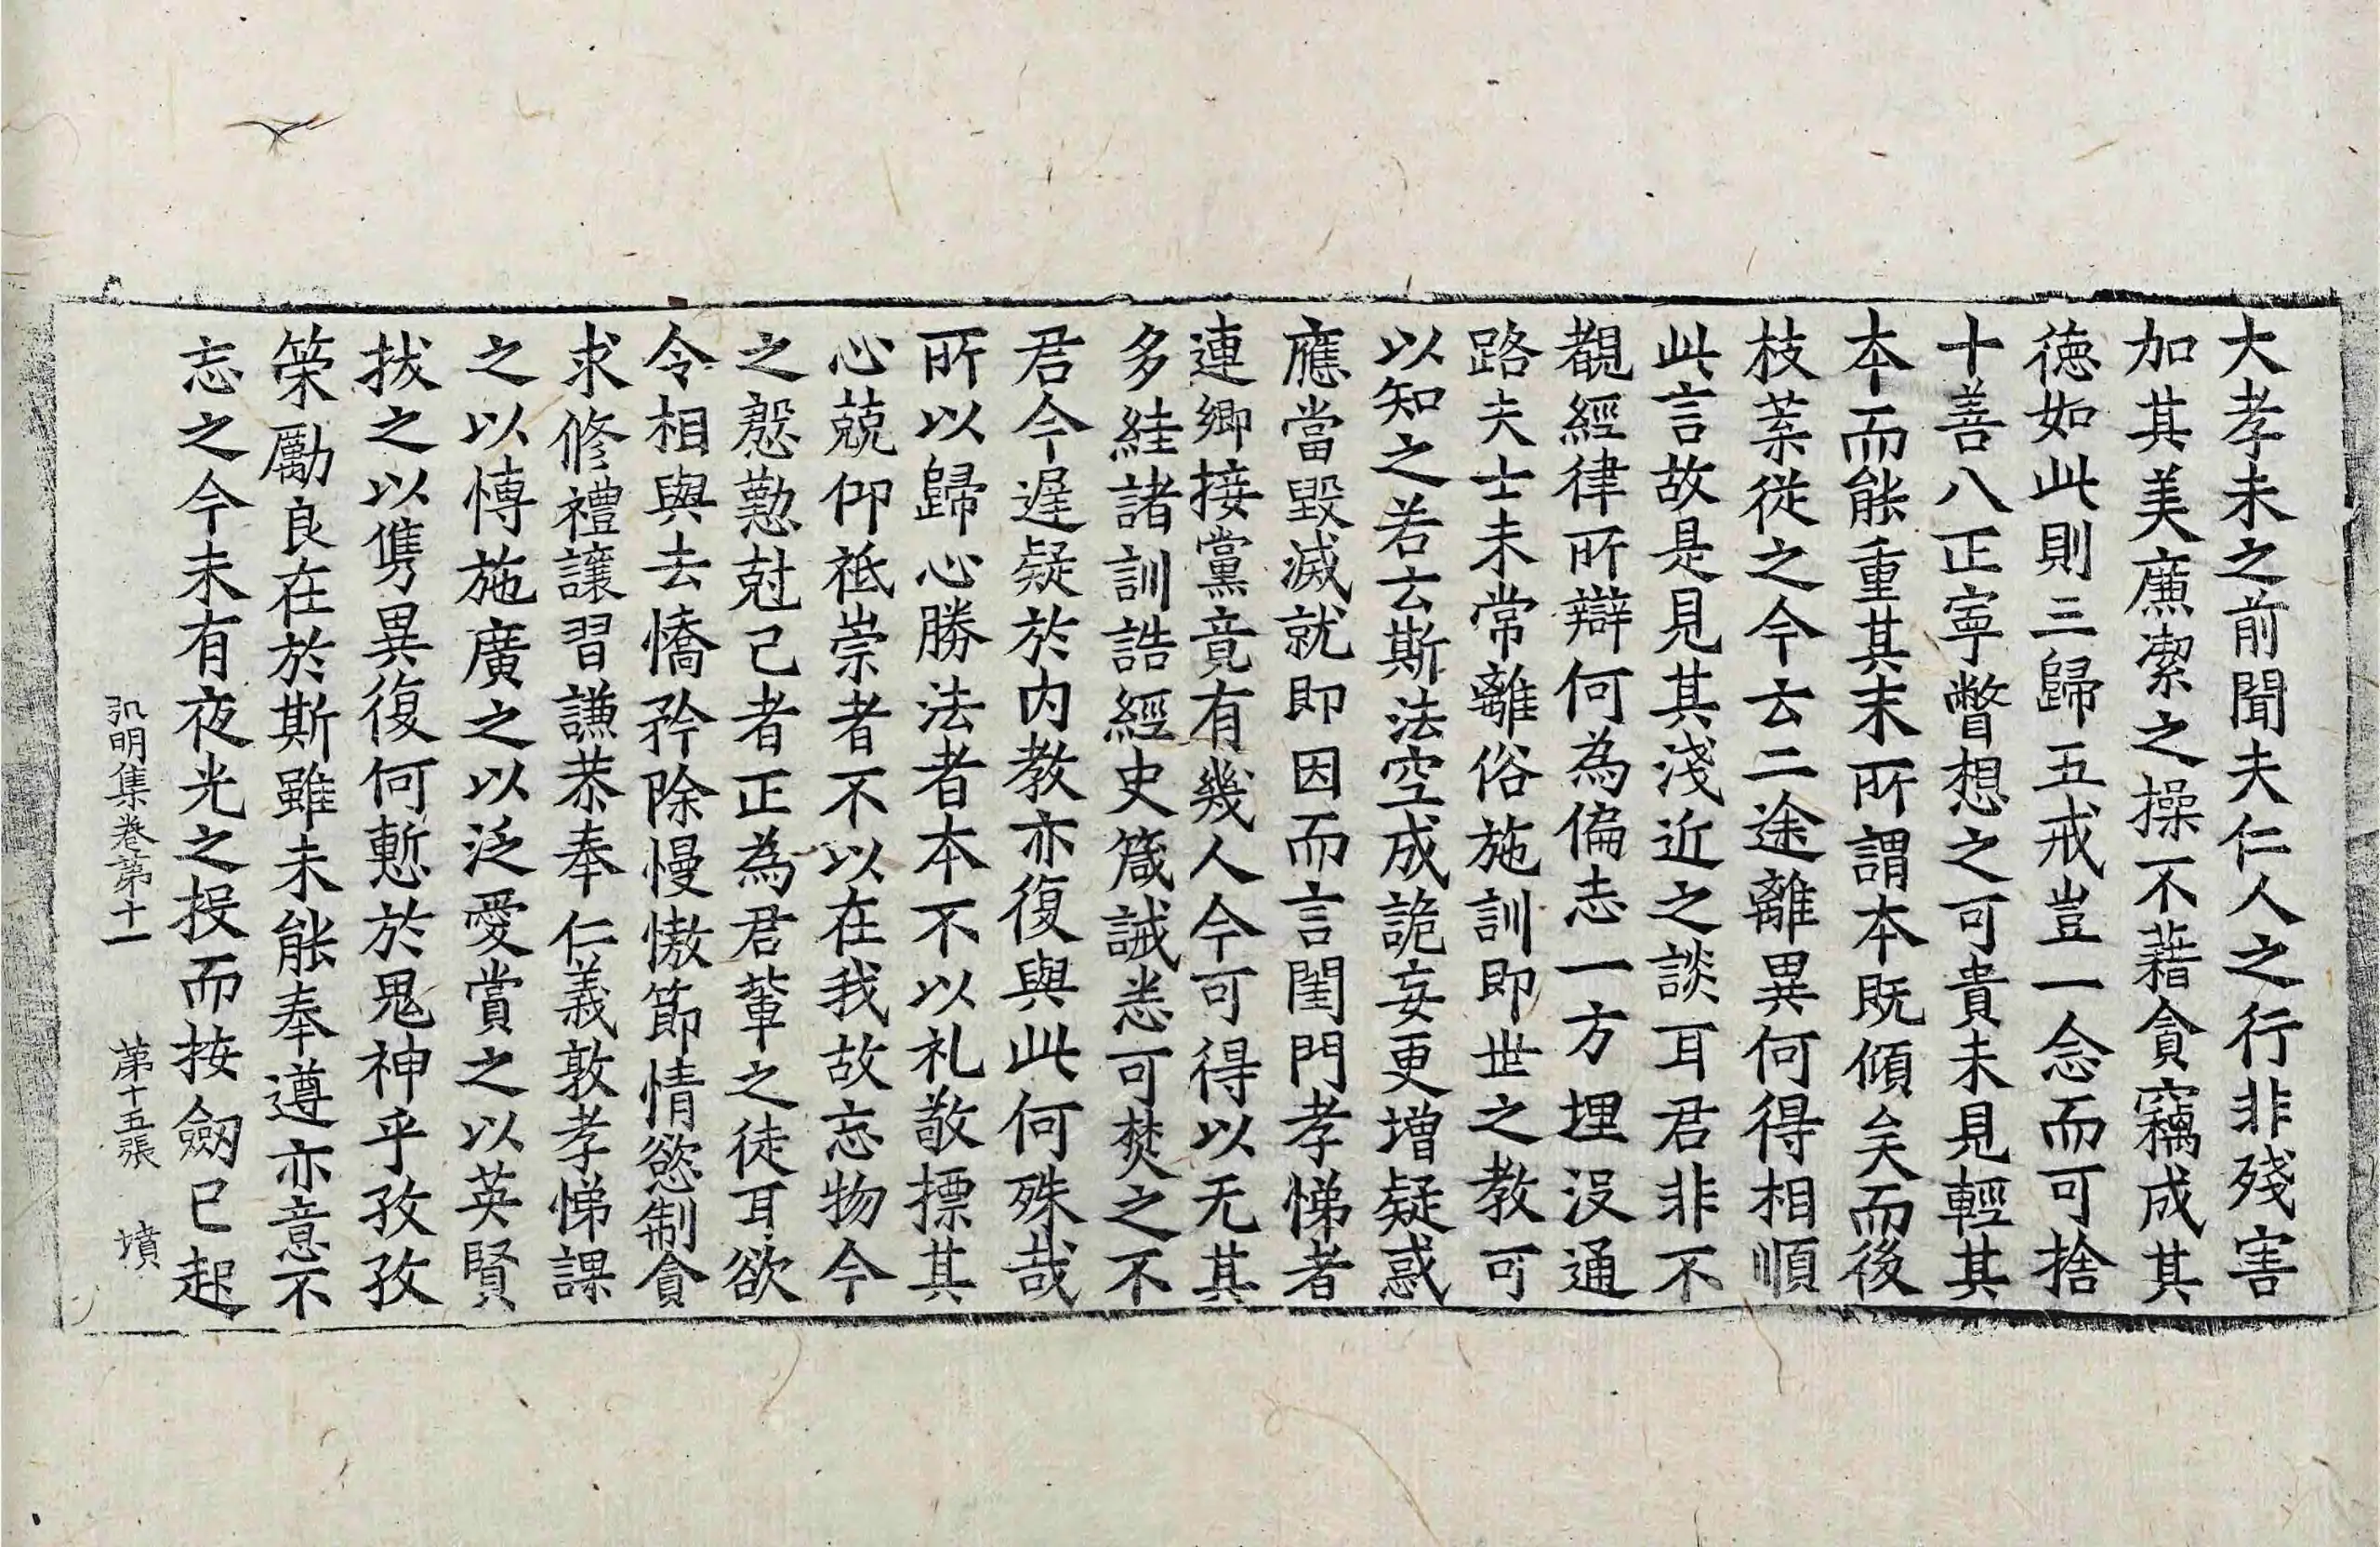 大孝未之前聞夫仁人之行非殘害
加其美廉潔之操不藉貪竊成其
徳如此則三歸五戒豈一念而可捨
十善八正寧瞥想之可貴未見輕其
本而能重其末所謂本既傾矣而後
枝葉從之今云二途離異何得相順
此言故是見其淺近之談耳君非不
覩經律所辯何為偏志一方埋没通
路夫士未常離俗施訓即世之教可
以知之若云斯法空成詭妄更增疑惑
應當毀滅就即因而言閨門孝悌者
連鄉接黨竟有幾人今可得以无其
多絓諸訓誥經史箴誡悉可焚之不
君今遅疑於内教亦復與此何殊哉
所以歸心勝法者本不以礼敬摽其
心兢仰祗崇者不以在我故忘物今
之慇懃尅己者正為君輩之徒耳欲
令相與去憍矜除慢慠節情慾制貪
求修禮讓習謙恭奉仁義敦孝悌課
之以博施廣之以泛愛賞之以英賢
拔之以儁異復何慙於鬼神乎孜孜
策勵良在於斯雖未能奉遵亦意不
忘之今未有夜光之投而按劒已起
弘明集卷第十一 第十五張 墳